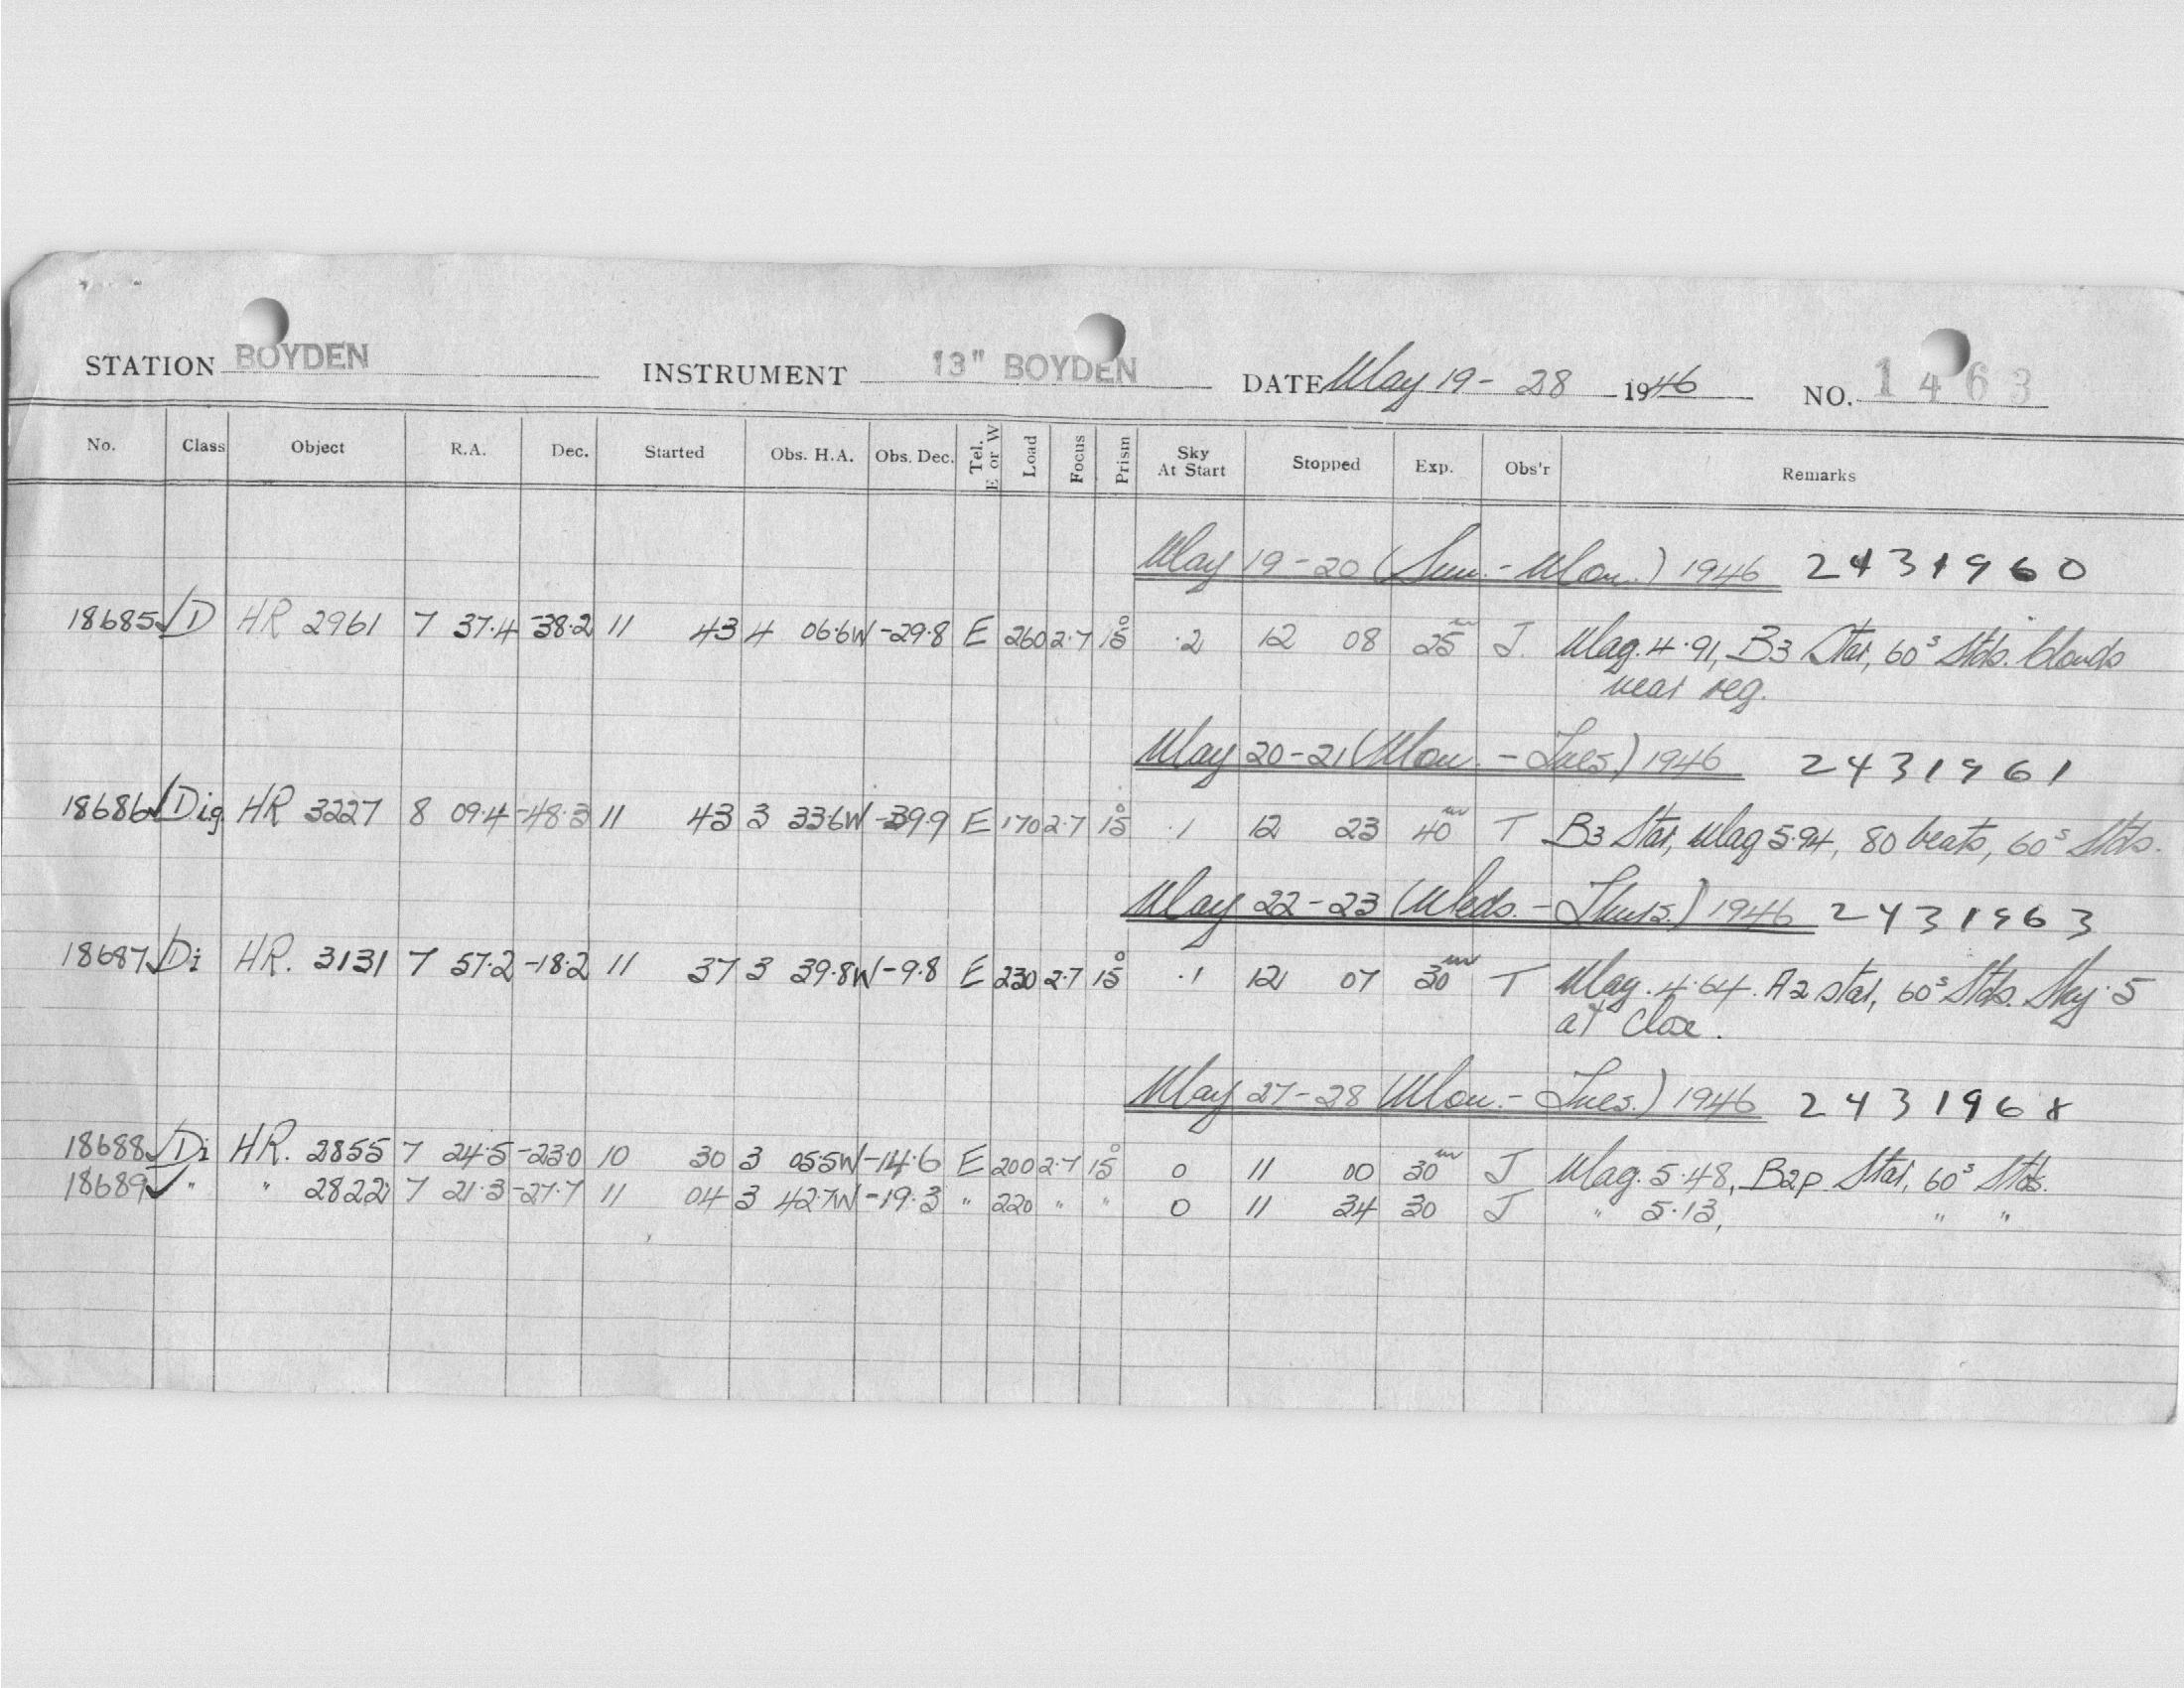 STATION BOYDEN INSTRUMENT 13" BOYDEN DATE May 19 - 28 1946 NO. 1463
No. Class Object R.A. Dec. Started Obs. H.A. Obs. Dec. Tel. E or W Load Focus Prism Sky At Start Stopped Exp. Obs'r Remarks
May 19-20 (Sun. - Mon.) 1946 2431960
18685 ✓ D HR 2961 7 37.4 -38.2 11 43 4 06.6W -29.8 E 260 2.7 15° .2 12 08 25m J. Mag. 4.91, B3 Star, 60s Stds. Clouds
near reg.
May 20-21 (Mon. - Tues) 1946 2431961
18686 ✓ Dig HR 3227 8 09.4 -48.3 11 43 3 33.6W -39.9 E 170 2.7 15° .1 12 23 40m T B3 Star, Mag 5.94, 80 beats, 60s Stds.
May 22-23 (Weds. - Thurs.) 1946 2431963
18687 ✓ Di HR. 3131 7 57.2 -18.2 11 37 3 39.8W -9.8 E 230 2.7 15° .1 12 07 30m T Mag. 4.64. A2 star, 60s Stds. Sky .5
at close.
May 27-28 (Mon. - Tues.) 1946 2431968
18688 ✓ Di HR. 2855 7 24.5 -23.0 10 30 3 05.5W -14.6 E 200 2.7 15° 0 11 00 30m J Mag. 5.48, B2p Star, 60s Stds.
18689 ✓ " " 2822 7 21.3 -27.7 11 04 3 42.7W -19.3 " 220 " " 0 11 34 30 J " 5.13, " "